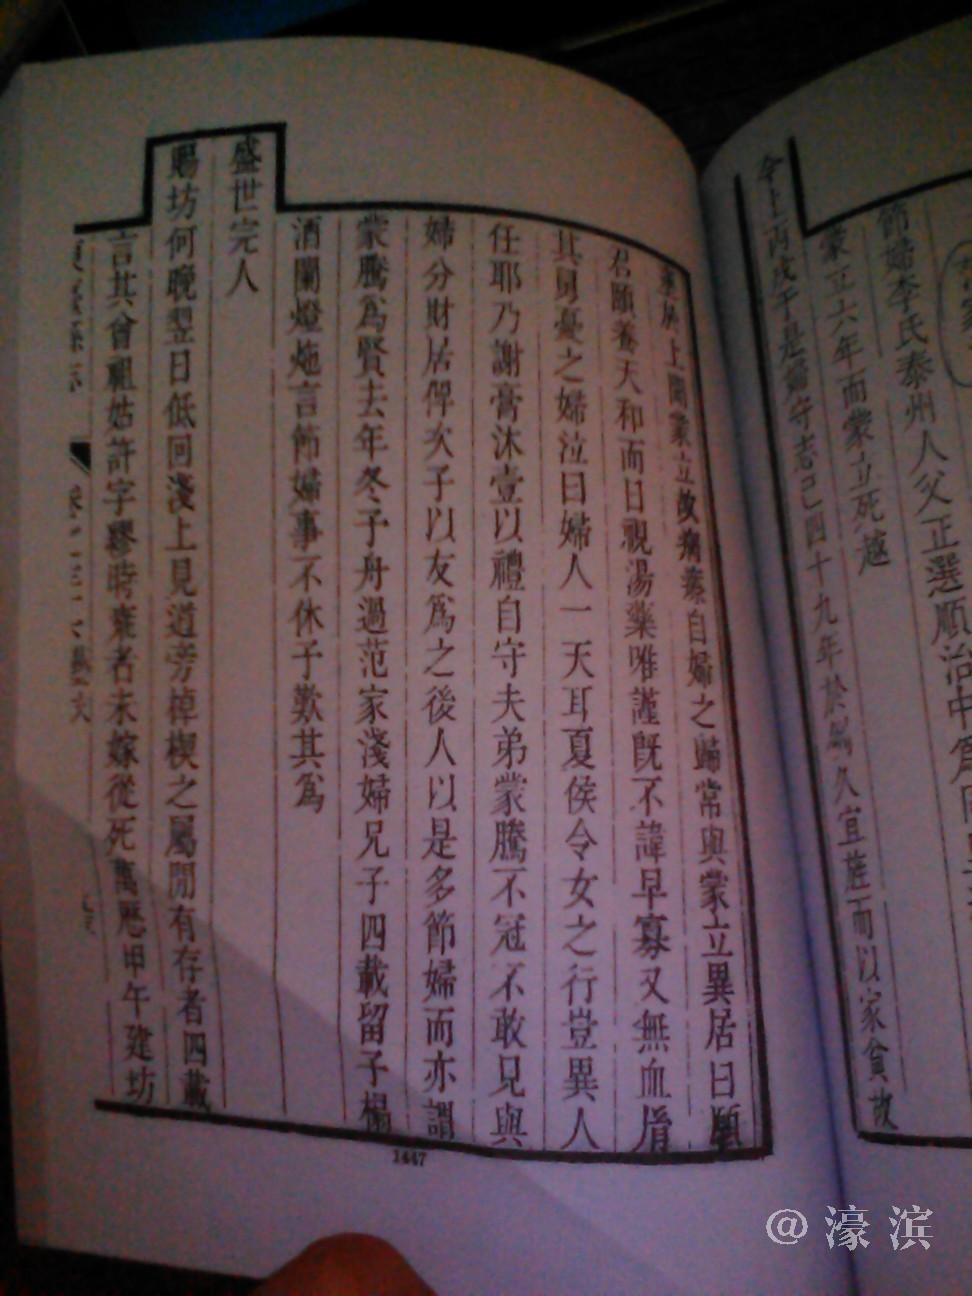 節婦李氏泰州人父正選順治中爲
蒙立六年而蒙立死越
今上丙戌于是婦守志已四十九年於例久宜旌而以家貧故
居上聞蒙立故病瘵自婦之歸常與蒙立異居曰願
君頤養天和而日視湯藥唯謹旣不諱早寡又無血胤
其舅憂之婦泣曰婦人一天耳夏侯令女之行豈異人
任耶乃謝膏沐壹以禮自守夫弟蒙騰不冠不敢見與
婦分財居俾次子以友爲之後人以是多節婦而亦謂
蒙騰爲賢去年冬予舟過范家淺婦兄子四載留予榻
酒闌燈灺言節婦事不休予歎其爲
盛世完人
賜坊何晚翌日低回淺上見道旁棹楔之屬閒有存者四載
言其曾祖姑許字繆時雍者未嫁從死萬歷甲午建坊
1447
@濠滨